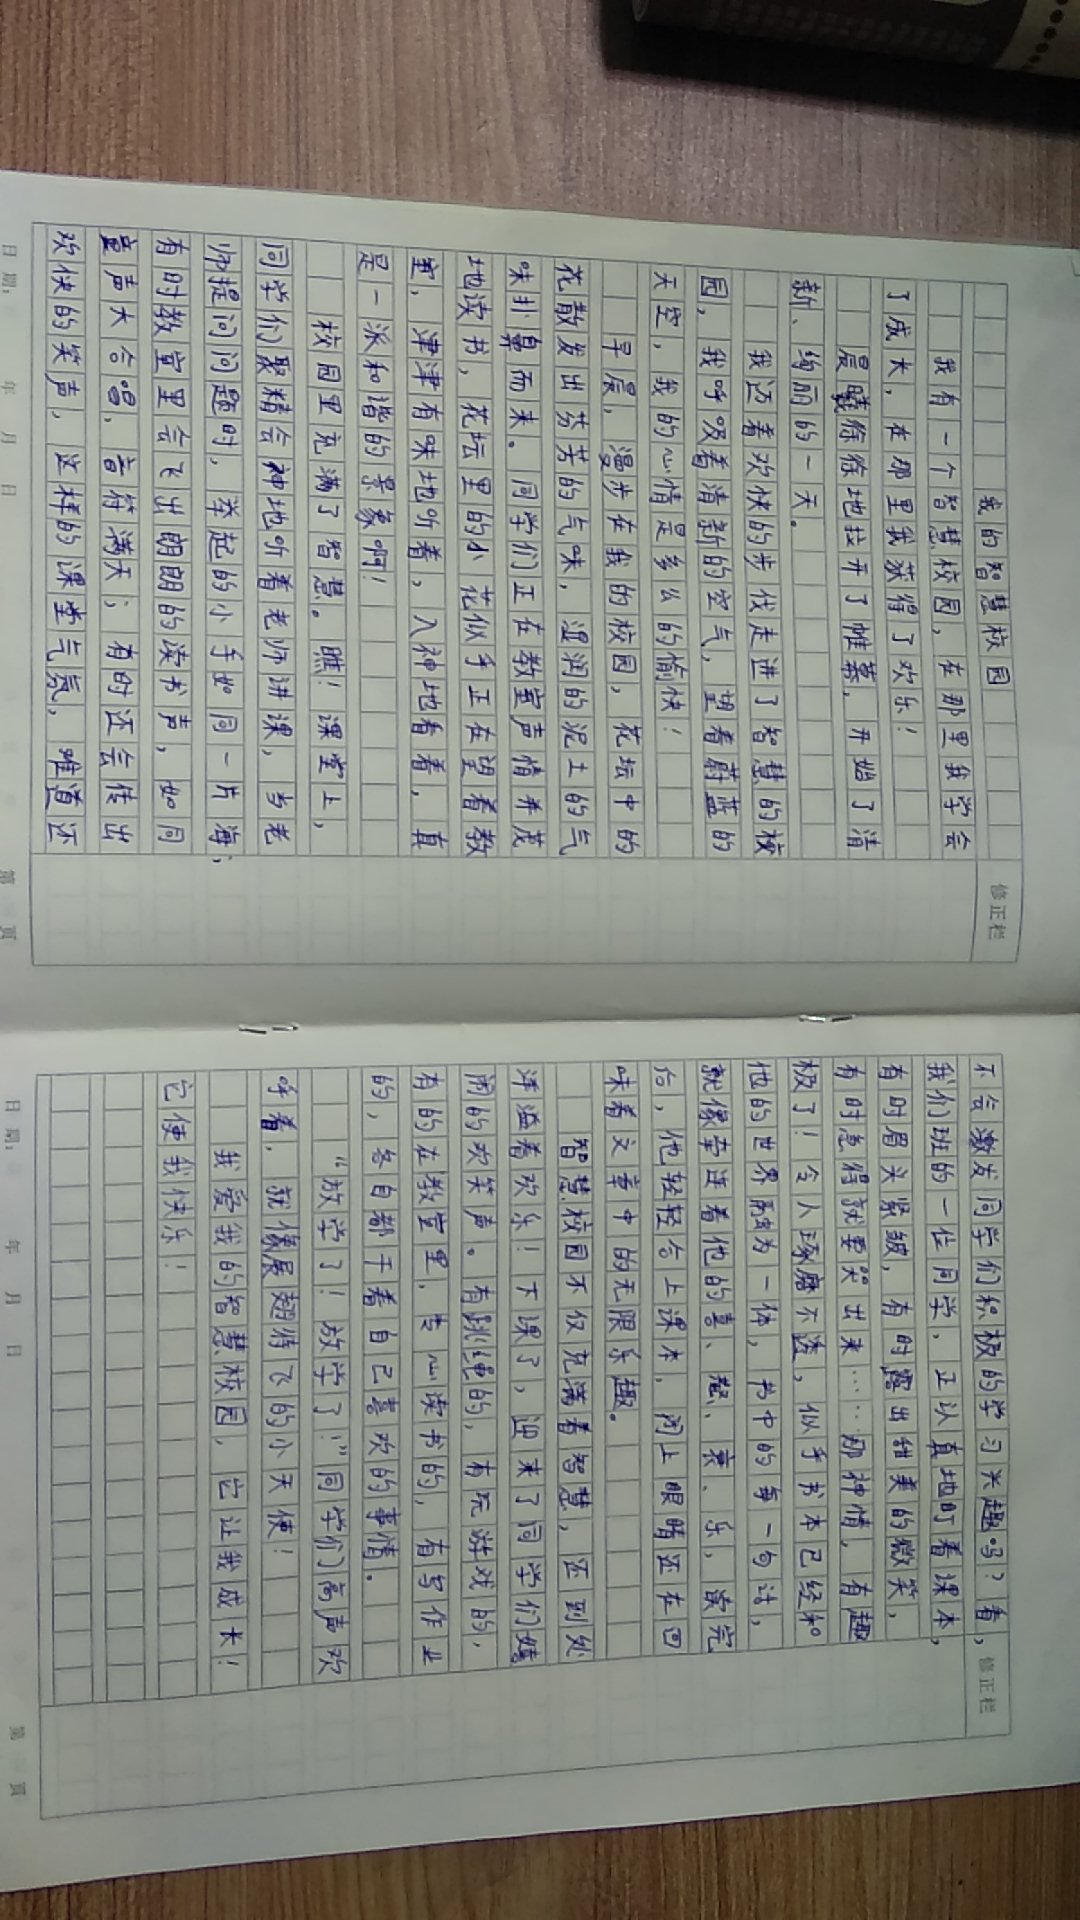 我的智慧校园
我有一个智慧校园，在那里我学会
了成长，在那里我获得了欢乐！
晨曦徐徐地拉开了帷幕，开始了清
新、绚丽的一天。
我迈着欢快的步伐走进了智慧的校
园，我呼吸着清新的空气，望着蔚蓝的
天空，我的心情是多么的愉快！
早晨，漫步在我的校园，花坛中的
花散发出芬芳的气味，湿润的泥土的气
味扑鼻而来。同学们正在教室声情并茂
地读书，花坛里的小花似乎正在望着教
室，津津有味地听着，入神地看着，真
是一派和谐的景象啊！
校园里充满了智慧。瞧！课堂上，
同学们聚精会神地听着老师讲课，当老
师提问问题时，举起的小手如同一片海；
有时教室里会飞出朗朗的读书声，如同
童声大合唱，音符满天；有时还会传出
欢快的笑声，这样的课堂气氛，难道还
修正栏
日期： 年 月 日
第 页
不会激发同学们积极的学习兴趣吗？看，
我们班的一位同学，正认真地盯着课本，
有时眉头紧皱，有时露出甜美的微笑，
有时急得就要哭出来……那神情，有趣
极了！令人琢磨不透，似乎书本已经和
他的世界融为一体，书中的每一句话，
就像牵连着他的喜、怒、哀、乐，读完
后，他轻轻合上课本，闭上眼睛还在回
味着文章中的无限乐趣。
智慧校园不仅充满着智慧，还到处
洋溢着欢乐！下课了，迎来了同学们嬉
闹的欢笑声。有跳绳的，有玩游戏的，
有的在教室里，专心读书的，有写作业
的，各自都干着自己喜欢的事情。
“放学了！放学了！”同学们高声欢
呼着，就像展翅待飞的小天使！
我爱我的智慧校园，它让我成长！
它使我快乐！
修正栏
日期： 年 月 日
第 页